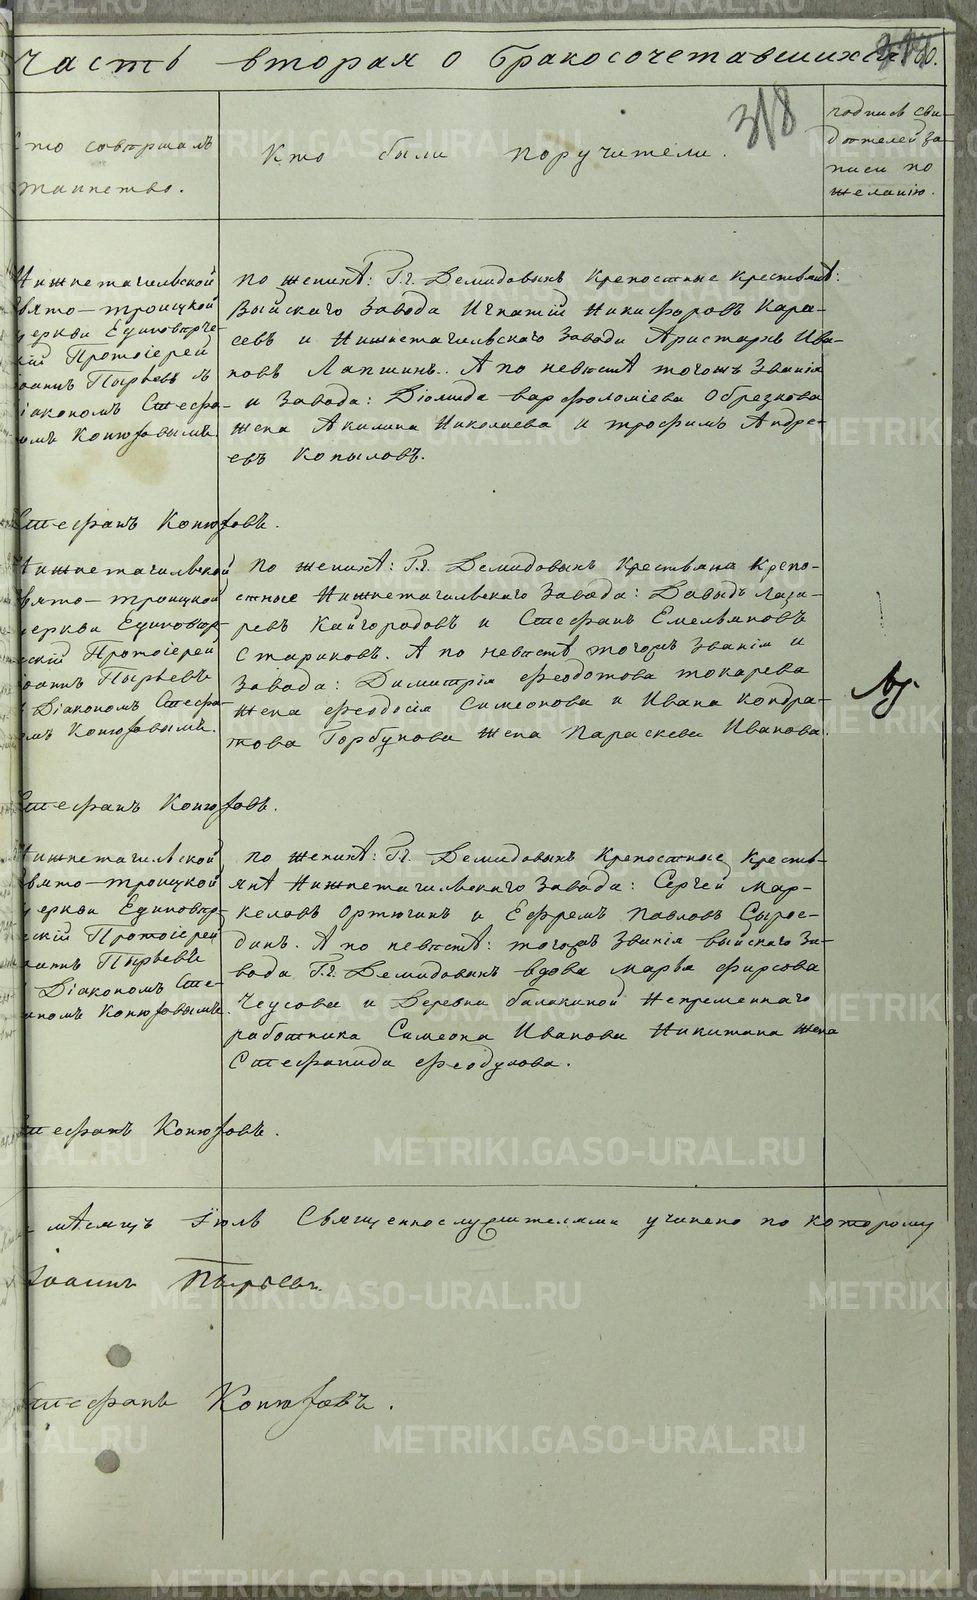 Часть вторая о бракосочетавшихся
318
то совершалъ
таинство.
Кто были поручители.
подпись сви-
дѣтелей за-
писи по
желанію.
Нижнетагильской
вято-троицкой
церкви Единовѣрче-
кій Протоіерей
оаннъ Пырьевъ съ
іакономъ Стефа-
омъ Конюховымъ.
по женихѣ: Г.г. Демидовыхъ крепостные крестьянѣ:
Выйскаго завода Игнатій Никифоровъ Кара-
севъ и Нижнетагильскаго завода Аристархъ Ива-
новъ Лапшинъ. А по невѣстѣ тогожъ званія
и завода: Діомида варфоломіева Обрезкова
жена Акилина Николаева и трофимъ Андре-
евъ Копыловъ.
Стефанъ Конюховъ.
Нижнетагильской
вято-троицкой
церкви Единовѣр-
скій Протоіерей
оаннъ Пырьевъ
Діакономъ Стефа-
омъ Конюховымъ.
по женихѣ: Г.г. Демидовыхъ крестьяна крепо-
стные Нижнетагильскаго завода: Давыдъ Лаза-
ревъ Кайгородовъ и Стефанъ Емельяновъ
Стариковъ. А по невѣстѣ тогожъ званія и
завода: Димитрія феодотова токарева
жена феодосія Симеонова и Ивана кондра-
това Горбунова жена Параскева Иванова.
Стефанъ Конюховъ.
Нижнетагильской
вято-троицкой
церкви Единовѣр-
скій Протоіерей
оаннъ Пырьевъ
Діакономъ Сте-
аномъ Конюховымъ.
по женихѣ: Г.г. Демидовыхъ крепостные кресть-
янѣ Нижнетагильскаго завода: Сергей Мар-
келовъ Ортюгинъ и Ефремъ Павловъ Сырое-
динъ. А по невѣстѣ: тогожъ званія выйскаго за-
вода Г.г. Демидовыхъ вдова марѳа фирсова
Чеусова и Деревни балакиной Непременнаго
работника Симеона Иванова Никитина жена
Стефанида феодулова.
Стефанъ Конюховъ.
мѣсяцъ Іюль Священнослужителями учинено по которому
Іоаннъ Пырьевъ.
Стефанъ Конюховъ.
METRIKI.GASO-URAL.RU